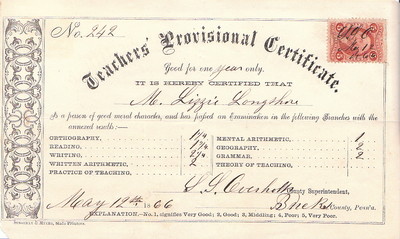 No. 242
Teachers' Provisional Certificate.
Good for one year only.
IT IS HEREBY CERTIFIED THAT
M. Lizzie Longshore
Is a person of good moral character, and has passed an Examination in the following Branches with the
annexed result:—
ORTHOGRAPHY, 1¾
READING, 1¾
WRITING, 2¼
WRITTEN ARITHMETIC, 2
PRACTICE OF TEACHING,
MENTAL ARITHMETIC, 1
GEOGRAPHY, 2
GRAMMAR, 2
THEORY OF TEACHING,
S. S. Overholt County Superintendent,
May 12th 1866 Bucks County, Penn'a.
EXPLANATION.—No. 1, signifies Very Good; 2, Good; 3, Middling; 4, Poor; 5, Very Poor.